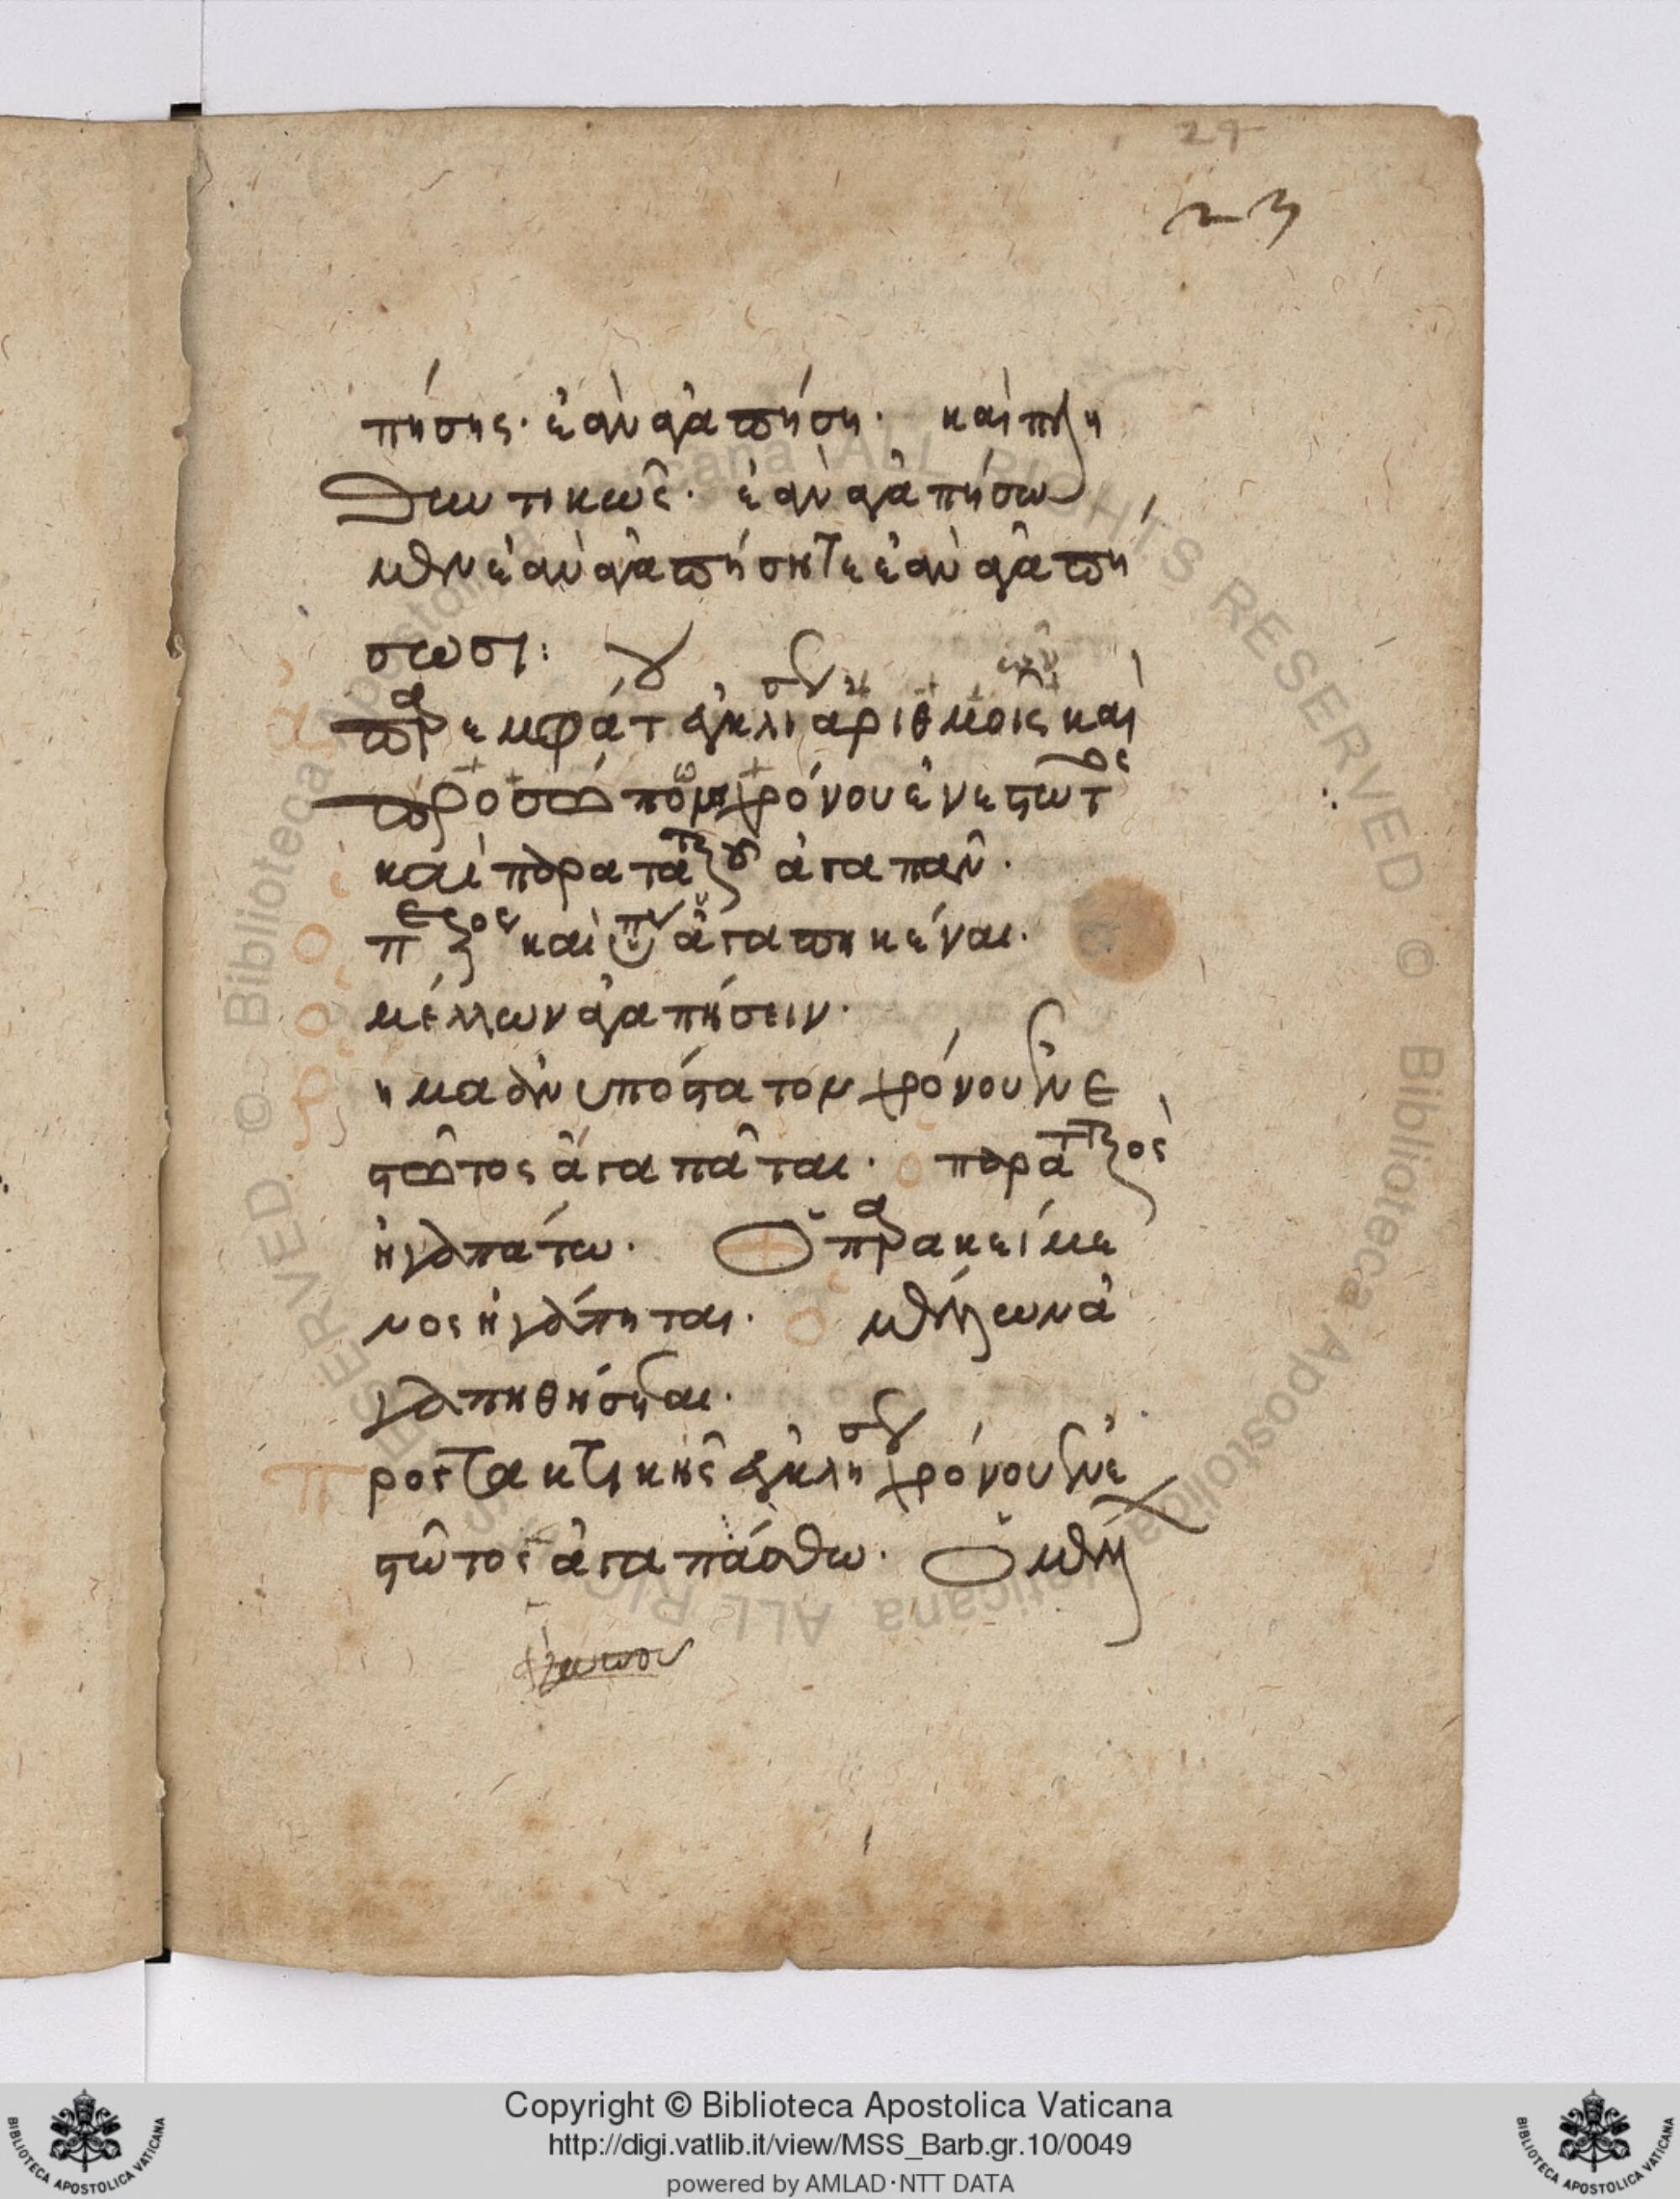 29
23
πήσης. ἐὰν ἀγαπήση. καὶ πλη
θυντικῶς. ἐὰν ἀγαπήσω
μεν ἐὰν ἀγαπήσητε ἐὰν ἀγαπή
σωσι:
ἀπαρεμφάτ ἐγκλι ἀριθμοῖς καὶ
προσώποις χρόνου ἐνεστῶτος
καὶ παρατατικοῦ ἀγαπᾶν.
καὶ ἀγαπηκέναι.
μέλλων ἀγαπήσειν.
χρόνου ἐνε
στῶτος ἀγαπᾶται. ὁ παρατατικὸς
ἠγαπάτω. ὁ παρακείμε
νος ἠγάπηται. ὁ μέλλων ἀ
γαπηθήσεται.
Προστακτικῆς ἐγκλι χρόνου ἐνε
στῶτος ἀγαπάσθω. ὁ
Copyright © Biblioteca Apostolica Vaticana
http://digi.vatlib.it/view/MSS_Barb.gr.10/0049
powered by AMLAD·NTT DATA
BIBLIOTECA APOSTOLICA VATICANA
BIBLIOTECA APOSTOLICA VATICANA